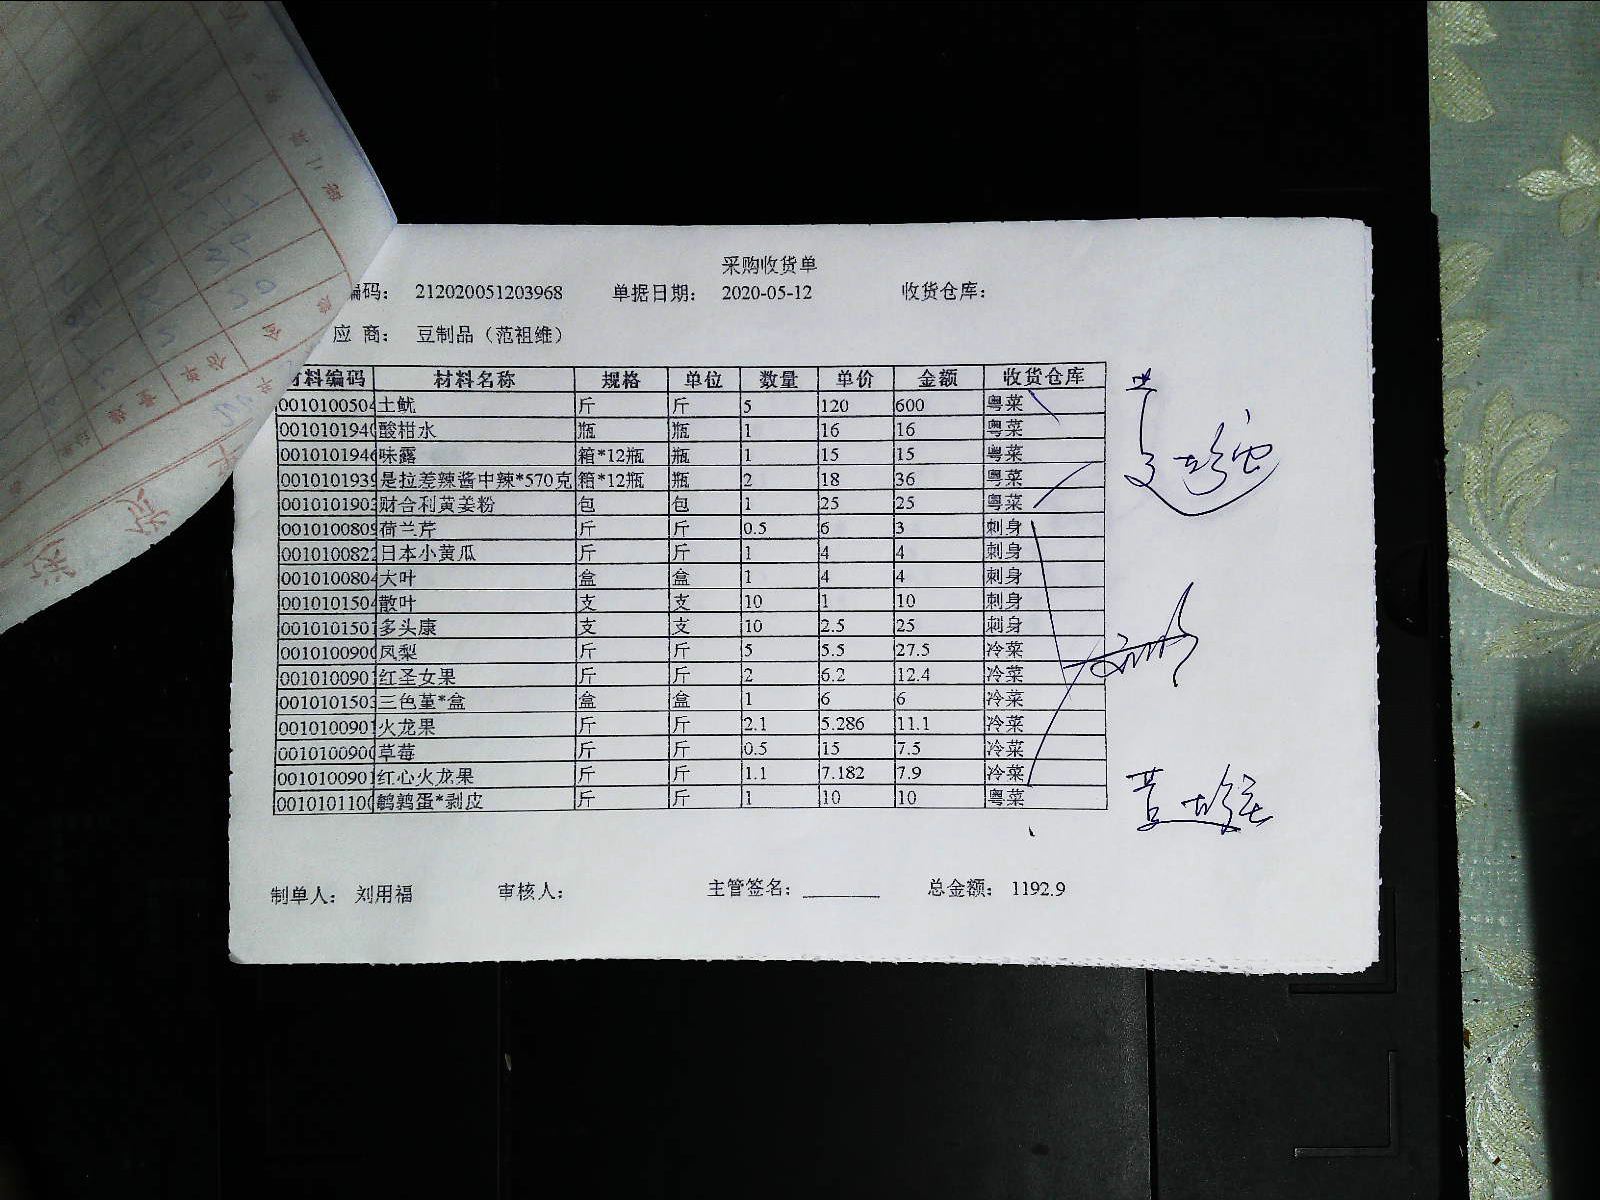 采购收货单
编码： 212020051203968 单据日期： 2020-05-12 收货仓库：
应 商： 豆制品（范祖维）
材料编码 材料名称 规格 单位 数量 单价 金额 收货仓库
0010100504 土鱿 斤 斤 5 120 600 粤菜
001010194 酸柑水 瓶 瓶 1 16 16 粤菜
001010194 味露 箱*12瓶 瓶 1 15 15 粤菜
001010193 是拉差辣酱中辣*570克 箱*12瓶 瓶 2 18 36 粤菜
001010190 财合利黄姜粉 包 包 1 25 25 粤菜
001010080 荷兰芹 斤 斤 0.5 6 3 刺身
001010082 日本小黄瓜 斤 斤 1 4 4 刺身
0010100804 大叶 盒 盒 1 4 4 刺身
0010101504 散叶 支 支 10 1 10 刺身
001010150 多头康 支 支 10 2.5 25 刺身
001010090 凤梨 斤 斤 5 5.5 27.5 冷菜
001010090 红圣女果 斤 斤 2 6.2 12.4 冷菜
001010150 三色堇*盒 盒 盒 1 6 6 冷菜
001010090 火龙果 斤 斤 2.1 5.286 11.1 冷菜
001010090 草莓 斤 斤 0.5 15 7.5 冷菜
001010090 红心火龙果 斤 斤 1.1 7.182 7.9 冷菜
001010110 鹌鹑蛋*剥皮 斤 斤 1 10 10 粤菜
制单人： 刘用福 审核人： 主管签名： 总金额： 1192.9